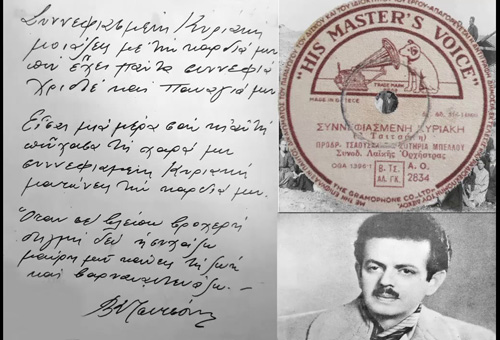 Συννεφιασμένη Κυριακή
μοιάζεις με την καρδιά μου
που έχει πάντα συννεφιά
Χριστέ και Παναγιά μου.
Είσαι μιά μέρα σαν κι αυτή
πούχασα τη χαρά μου
συννεφιασμένη Κυριακή
ματώνεις την καρδιά μου.
Όταν σε βλέπω βροχερή
στιγμή δεν ησυχάζω
μαύρη μου κάνεις τη ζωή
και βαρυαναστενάζω. —
"HIS MASTER'S VOICE"
TRADE MARK
MADE IN GREECE
ΣΥΝΝΕΦΙΑΣΜΕΝΗ ΚΥΡΙΑΚΗ
Τσιτσάνη)
ΠΡΟΔΡ. ΤΣΑΟΥΣ ΣΩΤΗΡΙΑ ΜΠΕΛΛΟΥ
Συνοδ. Λαϊκῆς Ὀρχήστρας
Β-ΤΣ.
ΑΛ. ΓΚ.
A.O.
2834
THE GRAMOPHONE CO., LTD.